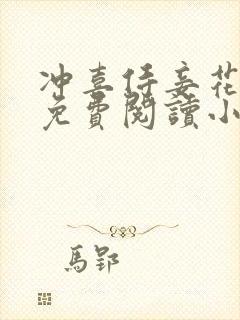 冲喜侍妾花
免費閱讀小
馬郢